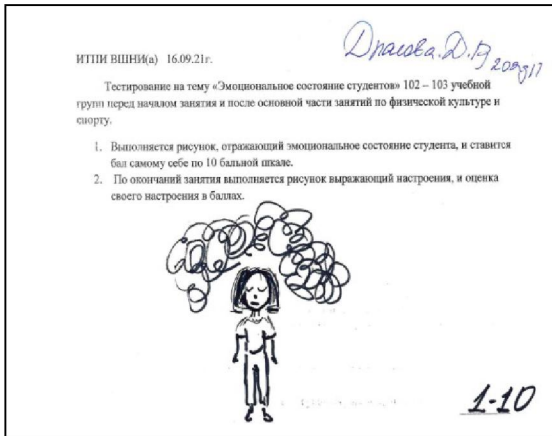 Драсова. Д. А
ИТПИ ВШНИ(а) 16.09.21г.
Тестирование на тему «Эмоциональное состояние студентов» 102 – 103 учебной
групп перед началом занятия и после основной части занятий по физической культуре и
спорту.
1. Выполняется рисунок, отражающий эмоциональное состояние студента, и ставится
бал самому себе по 10 бальной шкале.
2. По окончаний занятия выполняется рисунок выражающий настроения, и оценка
своего настроения в баллах.
1-10